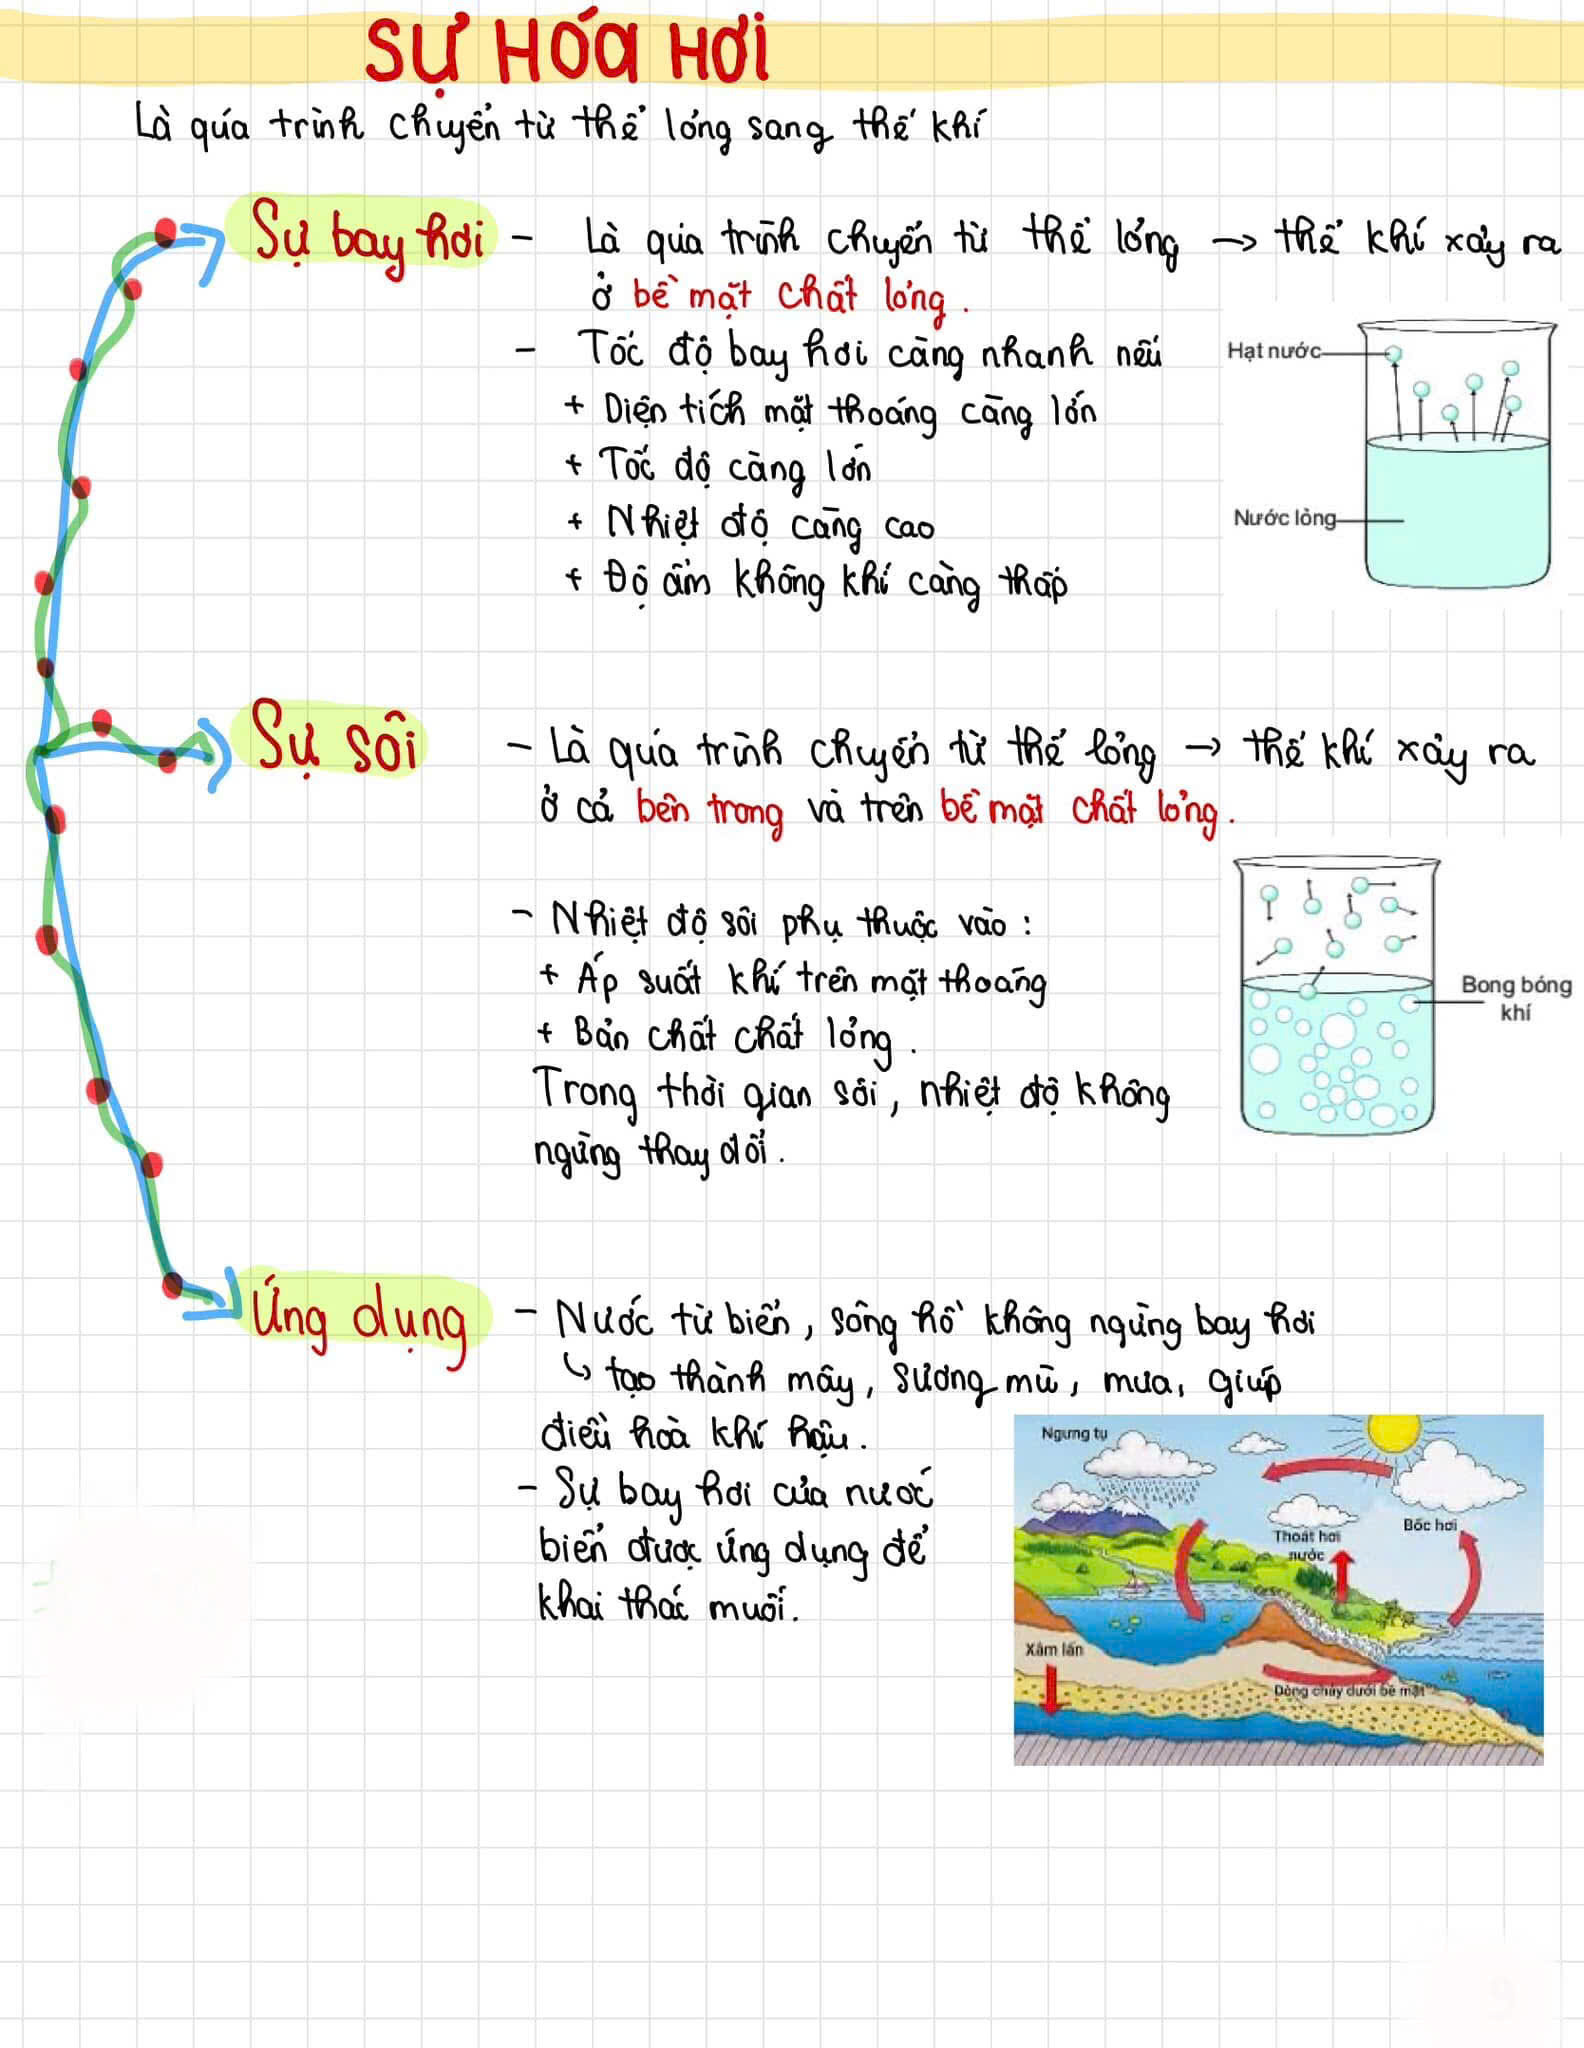 SỰ HÓA HƠI
Là qúa trình chuyển từ thể lỏng sang thể khí
Sự bay hơi - Là qúa trình chuyển từ thể lỏng → thể khí xảy ra
ở bề mặt chất lỏng.
- Tốc độ bay hơi càng nhanh nếu
Hạt nước
+ Diện tích mặt thoáng càng lớn
+ Tốc độ càng lớn
+ Nhiệt độ càng cao
Nước lỏng
+ Độ ẩm không khí càng thấp
Sự sôi - Là qúa trình chuyển từ thể lỏng → thể khí xảy ra
ở cả bên trong và trên bề mặt chất lỏng.
- Nhiệt độ sôi phụ thuộc vào:
+ Áp suất khí trên mặt thoáng
Bong bóng
khí
+ Bản chất chất lỏng.
Trong thời gian sôi, nhiệt độ không
ngừng thay đổi.
Ứng dụng - Nước từ biển, sông hồ không ngừng bay hơi
↳ tạo thành mây, sương mù, mưa, giúp
điều hoà khí hậu.
- Sự bay hơi của nước
biển được ứng dụng để
khai thác muối.
Ngưng tụ
Bốc hơi
Thoát hơi
nước
Xâm lấn
Dòng chảy dưới bề mặt
9